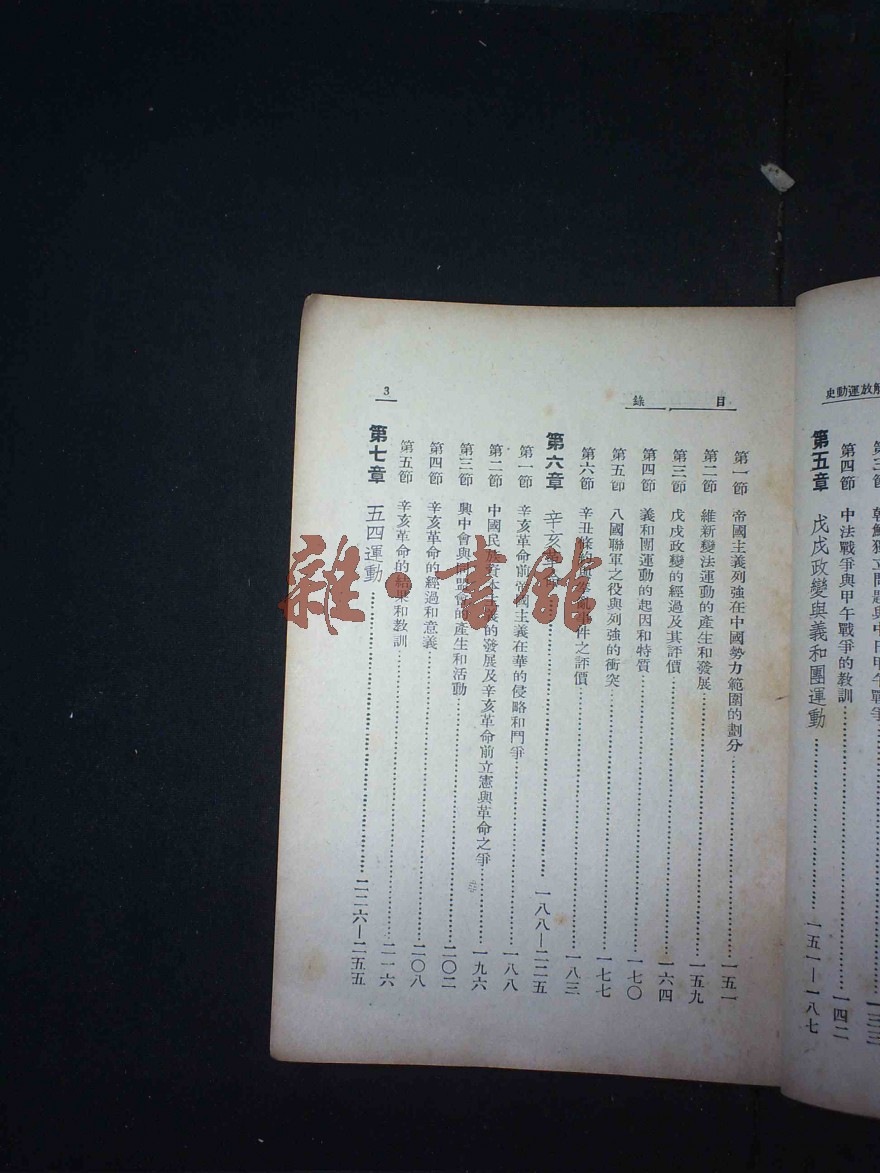 解放運動史
朝鮮獨立問題與中日甲午戰爭……一三三
第四節 中法戰爭與甲午戰爭的教訓……一四二
第五章 戊戌政變與義和團運動……一五一—一八七
目錄
3
第一節 帝國主義列強在中國勢力範圍的劃分……一五一
第二節 維新變法運動的產生和發展……一五九
第三節 戊戌政變的經過及其評價……一六四
第四節 義和團運動的起因和特質……一七〇
第五節 八國聯軍之役與列強的衝突……一七七
第六節 辛丑條約與 事件之評價……一八三
第六章 辛亥革命……一八八—二二五
第一節 辛亥革命前帝國主義在華的侵略和鬥爭……一八八
第二節 中國民族資本主義的發展及辛亥革命前立憲與革命之爭……一九六
第三節 興中會與同盟會的產生和活動……二〇二
第四節 辛亥革命的經過和意義……二〇八
第五節 辛亥革命的結果和教訓……二一六
第七章 五四運動……二二六—二五五
雜·書館